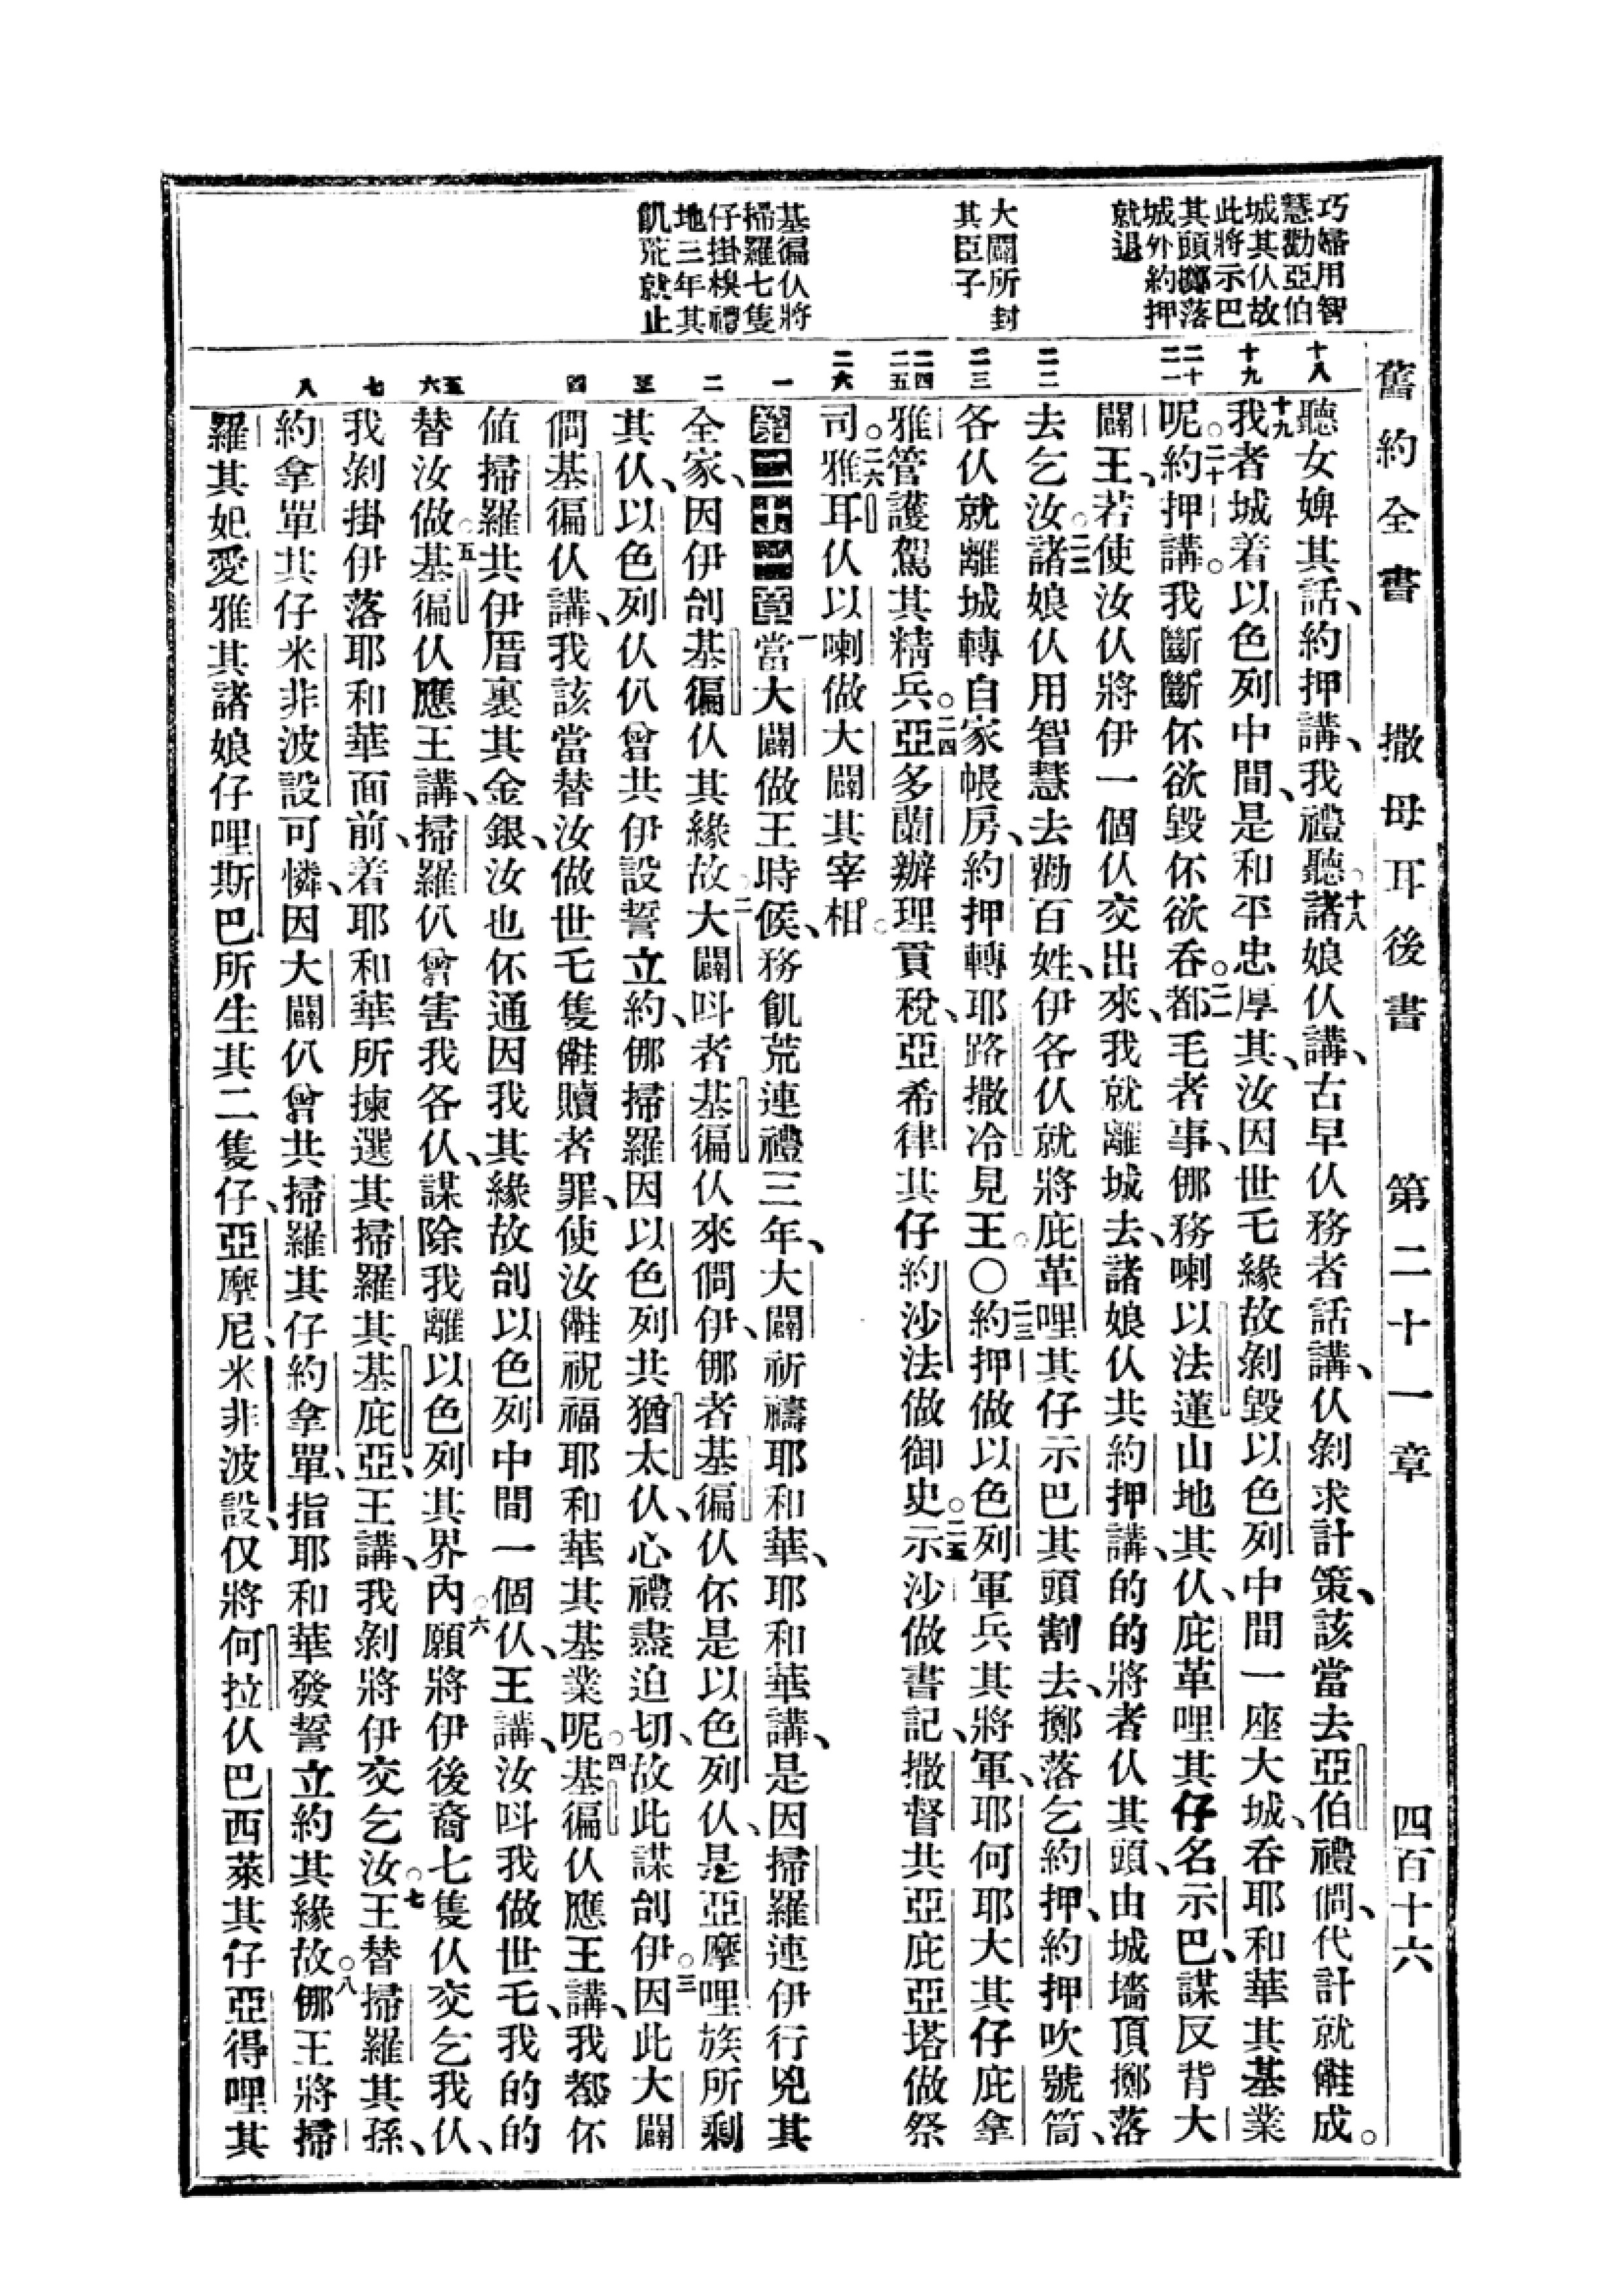 舊約全書 撒母耳後書 第二十一章 四百十六
巧婦用智
慧勸亞伯
城其仈故
此將示巴
其頭擲落
城外約押
就退
大闢所封
其臣子
基徧仈將
掃羅七隻
仔掛槼禮
地三年其
飢荒就止
十八
十九
二十
二一
二二
二三
二四
二五
二六
一
二
三
四
五
六
七
八
聽女婢其話、約押講、我禮聽。十八諸娘仈講、古早仈務者話講、仈剝求計策、該當去亞伯禮僩、代計就𣍐成。
十九我者城着以色列中間、是和平忠厚其、汝因世乇緣故剝毀以色列中間一座大城、吞耶和華其基業
呢。二十約押講。我斷斷伓欲毀伓欲吞。二一都毛者事、倻務喇以法蓮山地其仈、庇革哩其仔名示巴、謀反背大
闢王、若使汝仈將伊一個仈交出來、我就離城去、諸娘仈共約押講、的的將者仈其頭、由城墻頂擲落
去乞汝。二二諸娘仈用智慧去勸百姓、伊各仈就將庇革哩其仔示巴其頭割去、擲落乞約押、約押吹號筒、
各仈就離城轉自家帳房、約押轉耶路撒冷見王。〇二三約押做以色列軍兵其將軍、耶何耶大其仔庇拿
雅管護駕其精兵。二四亞多蘭辦理貢稅、亞希律其仔約沙法做御史。二五示沙做書記、撒督共亞庇亞塔做祭
司。二六雅耳仈以喇做大闢其宰相。
第二十一章 一當大闢做王時候、務飢荒連禮三年、大闢祈禱耶和華、耶和華講、是因掃羅連伊行兇其
全家、因伊刣基徧仈其緣故。二大闢呌者基徧仈來僩伊、倻者基徧仈伓是以色列仈、是亞摩哩族所剩
其仈、以色列仈仈曾共伊設誓立約、倻掃羅因以色列共猶太仈、心禮盡迫切、故此謀刣伊。三因此大闢
僩基徧仈講、我該當替汝做世乇隻𣍐贖者罪、使汝𣍐祝福耶和華其基業呢。四基徧仈應王講、我都伓
値掃羅共伊厝裏其金銀、汝也伓通因我其緣故刣以色列中間一個仈、王講、汝呌我做世乇、我的的
替汝做。五基徧仈應王講、掃羅仈曾害我各仈、謀除我離以色列其界內。六願將伊後裔七隻仈交乞我仈、
我剝掛伊落耶和華面前、着耶和華所揀選其掃羅其基庇亞、王講、我剝將伊交乞汝。七王替掃羅其孫、
約拿單其仔米非波設可憐、因大闢仈曾共掃羅其仔約拿單、指耶和華發誓立約其緣故。八倻王將掃
羅其妃愛雅其諸娘仔哩斯巴所生其二隻仔、亞摩尼、米非波設、仅將何拉仈巴西萊其仔亞得哩其